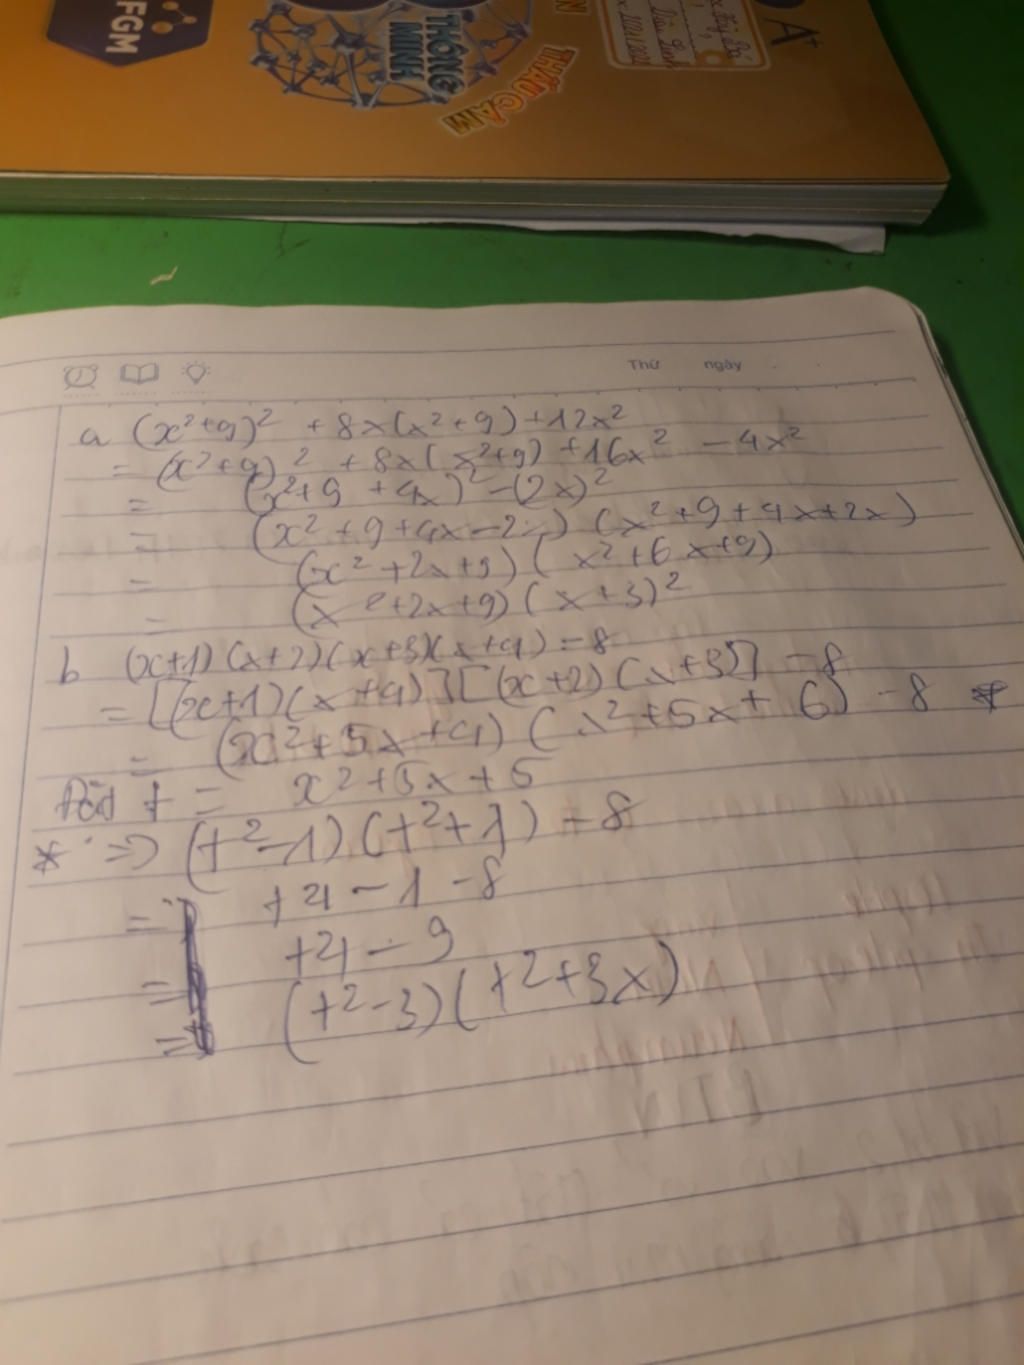 FGM
THÔNG
MINH
THẤU CẢM
A+
Thứ ngày
a (x²+9)² + 8x(x²+9) + 12x²
= (x²+9)² + 8x(x²+9) + 16x² - 4x²
= (x²+9 + 4x)² - (2x)²
= (x²+9+4x-2x) (x²+9+4x+2x)
= (x²+2x+9) (x²+6x+9)
= (x²+2x+9) (x+3)²
b (x+1)(x+2)(x+3)(x+4) - 8
= [(x+1)(x+4)][(x+2)(x+3)] - 8
= (x²+5x+4) (x²+5x+6) - 8 *
Đặt t = x²+5x+5
* => (t²-1)(t²+1) - 8
= t4 - 1 - 8
= t4 - 9
= (t²-3)(t²+3x)